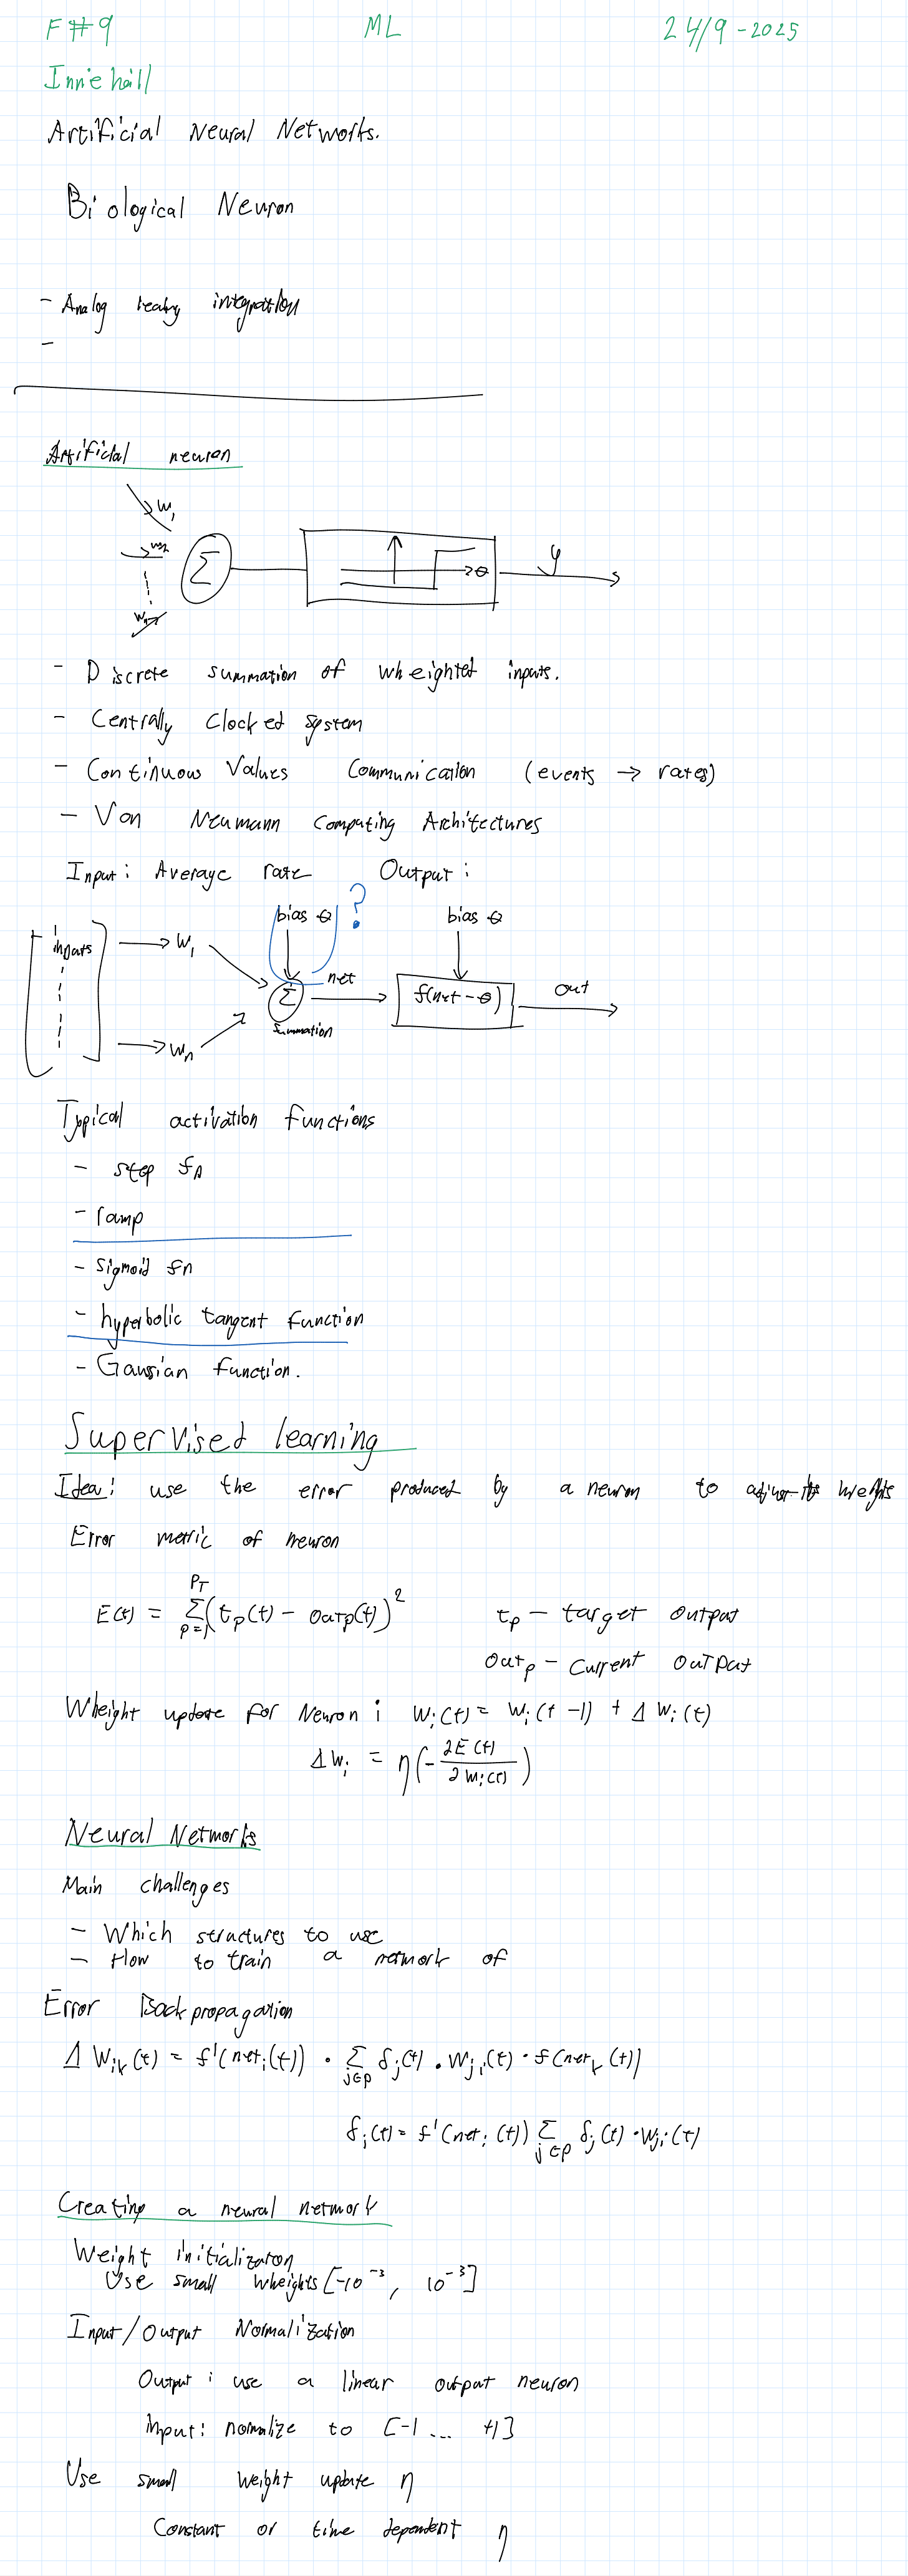 F#9 ML 24/9-2025
Innehåll
Artificial Neural Networks.
Biological Neuron
- Analog leaky integration
-
Artificial neuron
w₁
w₂
wₙ
Σ
θ
y
- Discrete summation of wheighted inputs.
- Centrally Clocked system
- Continuous Values Communication (events → rates)
- Von Neumann Computing Architectures
Input: Average rate Output:
?
bias θ bias θ
inputs
w₁
net
Σ
f(net - θ)
out
summation
wₙ
Typical activation functions
- step fn
- ramp
- sigmoid fn
- hyperbolic tangent function
- Gaussian function.
Supervised learning
Idea: use the error produced by a neuron to adjust its wheights
Error metric of neuron
E(t) = Σ_{p=1}^{P_T} (t_p(t) - out_p(t))²
t_p - target output
out_p - current output
Wheight update for Neuron i w_i(t) = w_i(t-1) + Δw_i(t)
Δw_i = η(-∂E(t)/∂w_i(t))
Neural Networks
Main challenges
- Which structures to use
- How to train a network of
Error Backpropagation
Δw_ik(t) = f'(net_i(t)) · Σ_{j∈p} δ_j(t) · w_ji(t) · f(net_k(t))
δ_i(t) = f'(net_i(t)) Σ_{j∈p} δ_j(t) · w_ji(t)
Creating a neural network
Weight initializaton
Use small wheights [-10⁻³, 10⁻³]
Input/Output Normalization
Output: use a linear output neuron
Input: normalize to [-1 ... +1]
Use small weight update η
Constant or time dependent η